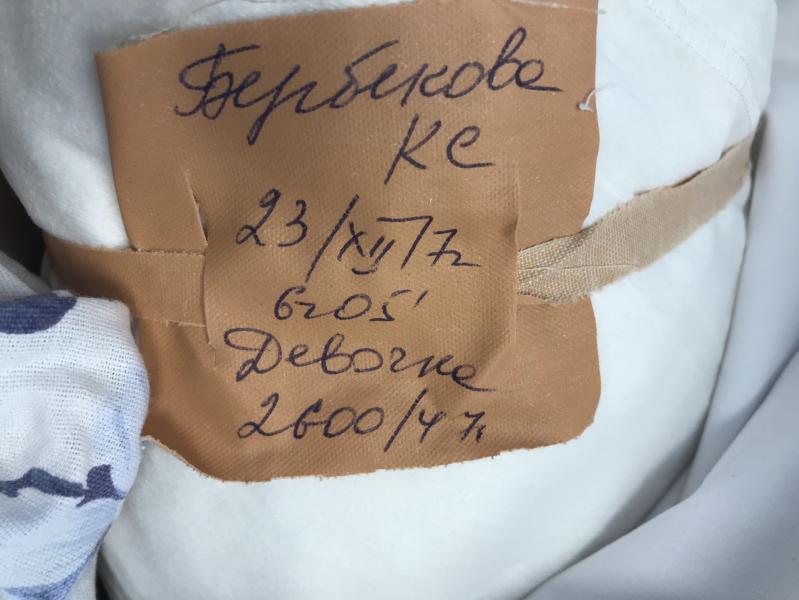 Бербекова
КС
23/XII/7г
6г05'
Девочка
2600/47